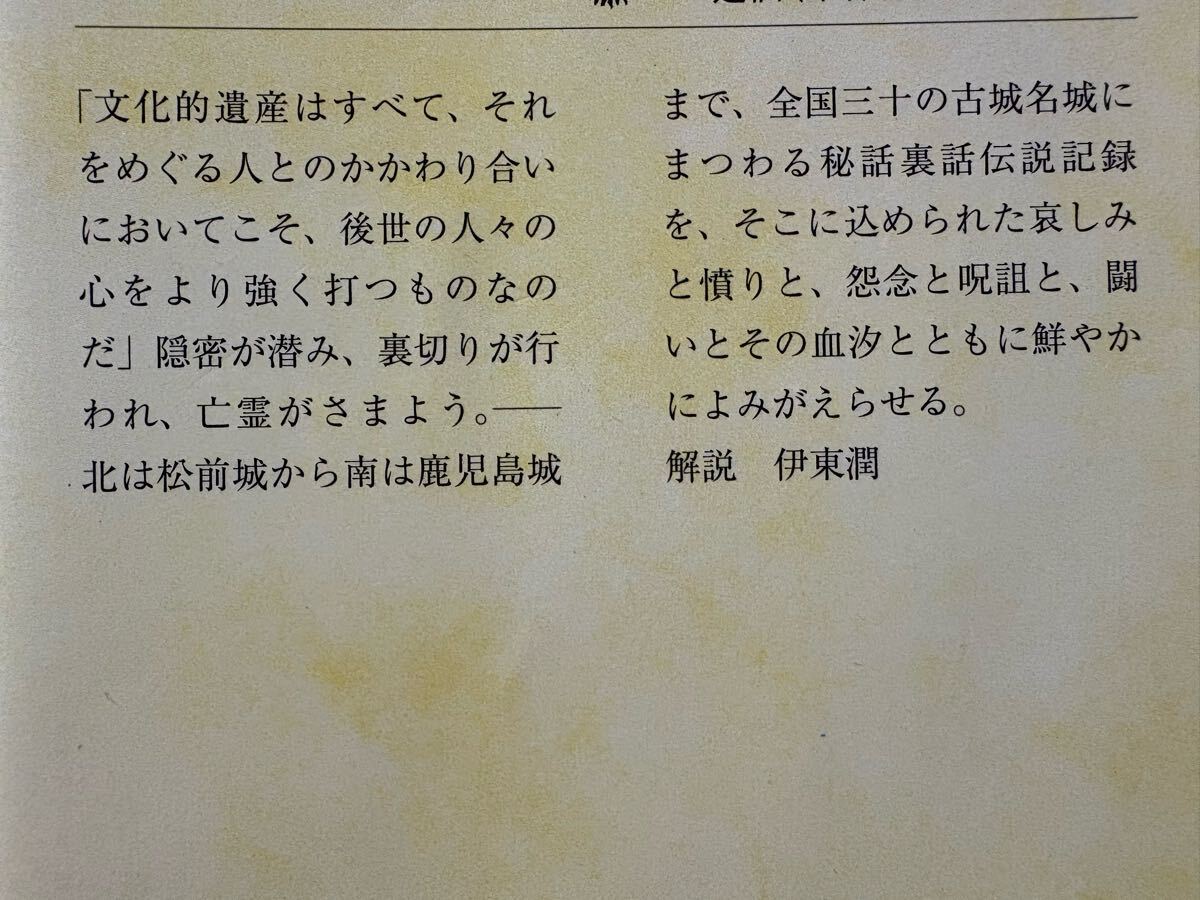 「文化的遺産はすべて、それ
をめぐる人とのかかわり合い
においてこそ、後世の人々の
心をより強く打つものなの
だ」隠密が潜み、裏切りが行
われ、亡霊がさまよう。──
北は松前城から南は鹿児島城
まで、全国三十の古城名城に
まつわる秘話裏話伝説記録
を、そこに込められた哀しみ
と憤りと、怨念と呪詛と、闘
いとその血汐とともに鮮やか
によみがえらせる。
解説　伊東潤